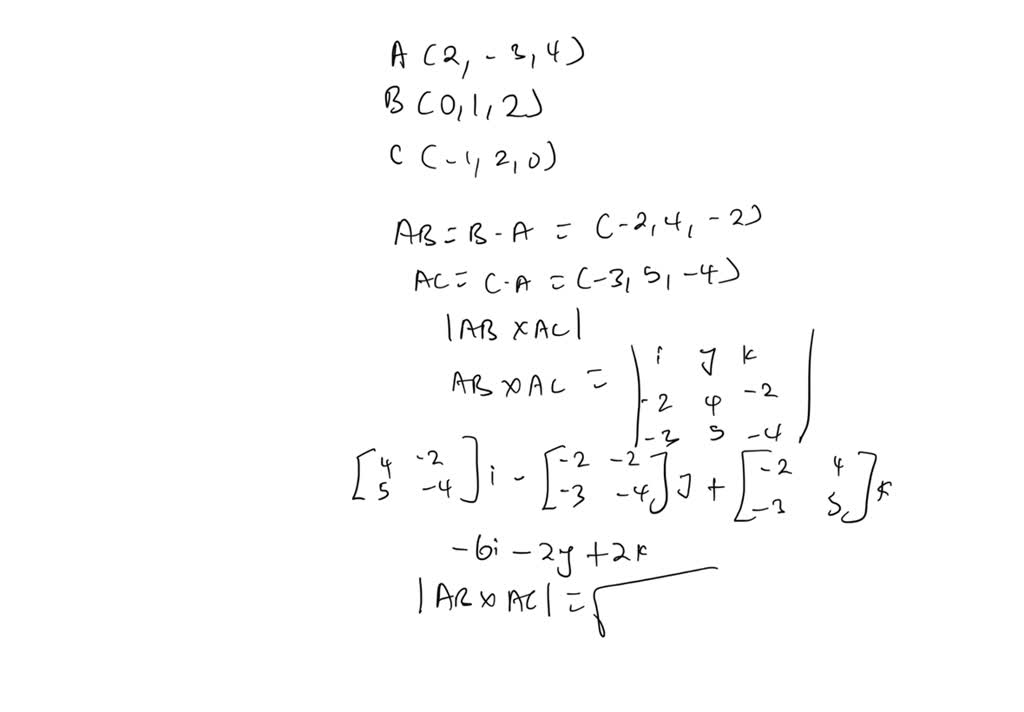 A (2, -3, 4)
B (0, 1, 2)
C (-1, 2, 0)
AB = B - A = (-2, 4, -2)
AC = C - A = (-3, 5, -4)
|AB x AC|
AB x AC = | i j k
-2 4 -2
-3 5 -4 |
[4 -2
5 -4] i - [-2 -2
-3 -4] j + [-2 4
-3 5] k
-6i - 2y + 2k
|AB x AC| = √